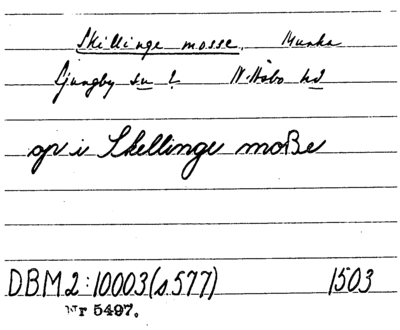 Skillinge mosse, Munka
Ljungby sn ? N. Åsbo hd
op i Skellinge moße
DBM 2:10003 (s. 577) 1503
Nr 5497.